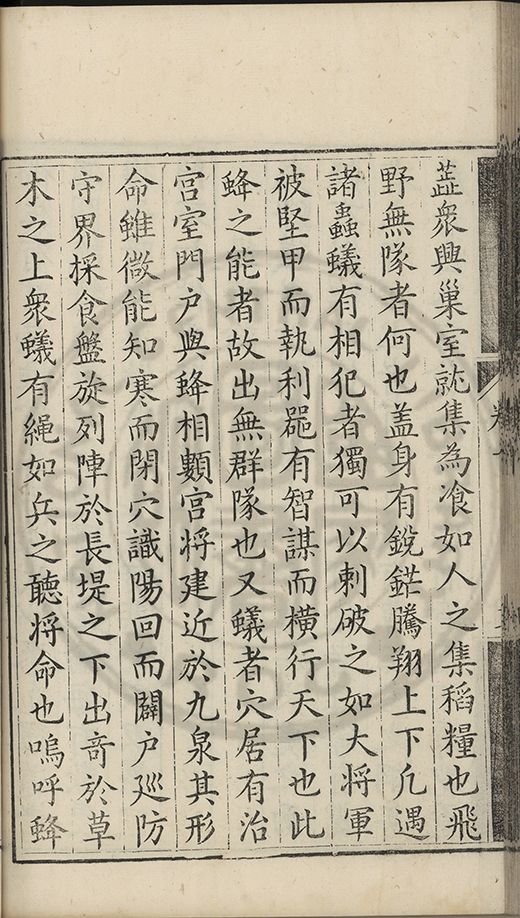 蘂衆興巢室就集為飡如人之集稻糧也飛
野無隊者何也盖身有銳鋩騰翔上下凢遇
諸蟲蟻有相犯者獨可以刺破之如大將軍
被堅甲而執利噐有智謀而橫行天下也此
蜂之能者故出無群隊也又蟻者穴居有治
宫室門户與蜂相類宫将建近於九泉其形
命雖微能知寒而閉穴識陽回而闢户廵防
守界採食盤旋列陣於長堤之下出竒於草
木之上衆蟻有繩如兵之聽将命也嗚呼蜂